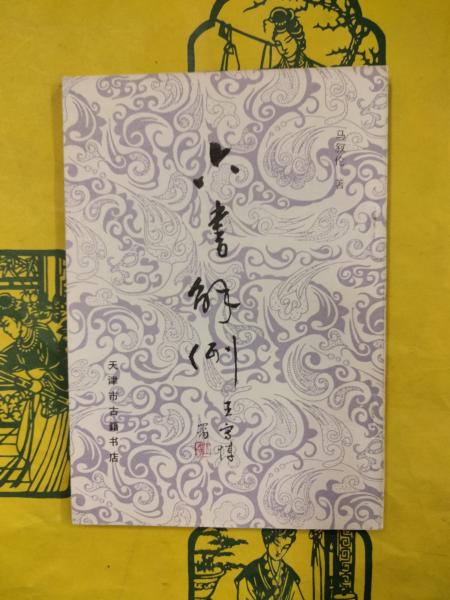 马叙伦 著
六書解例
王
署
天津市古籍书店